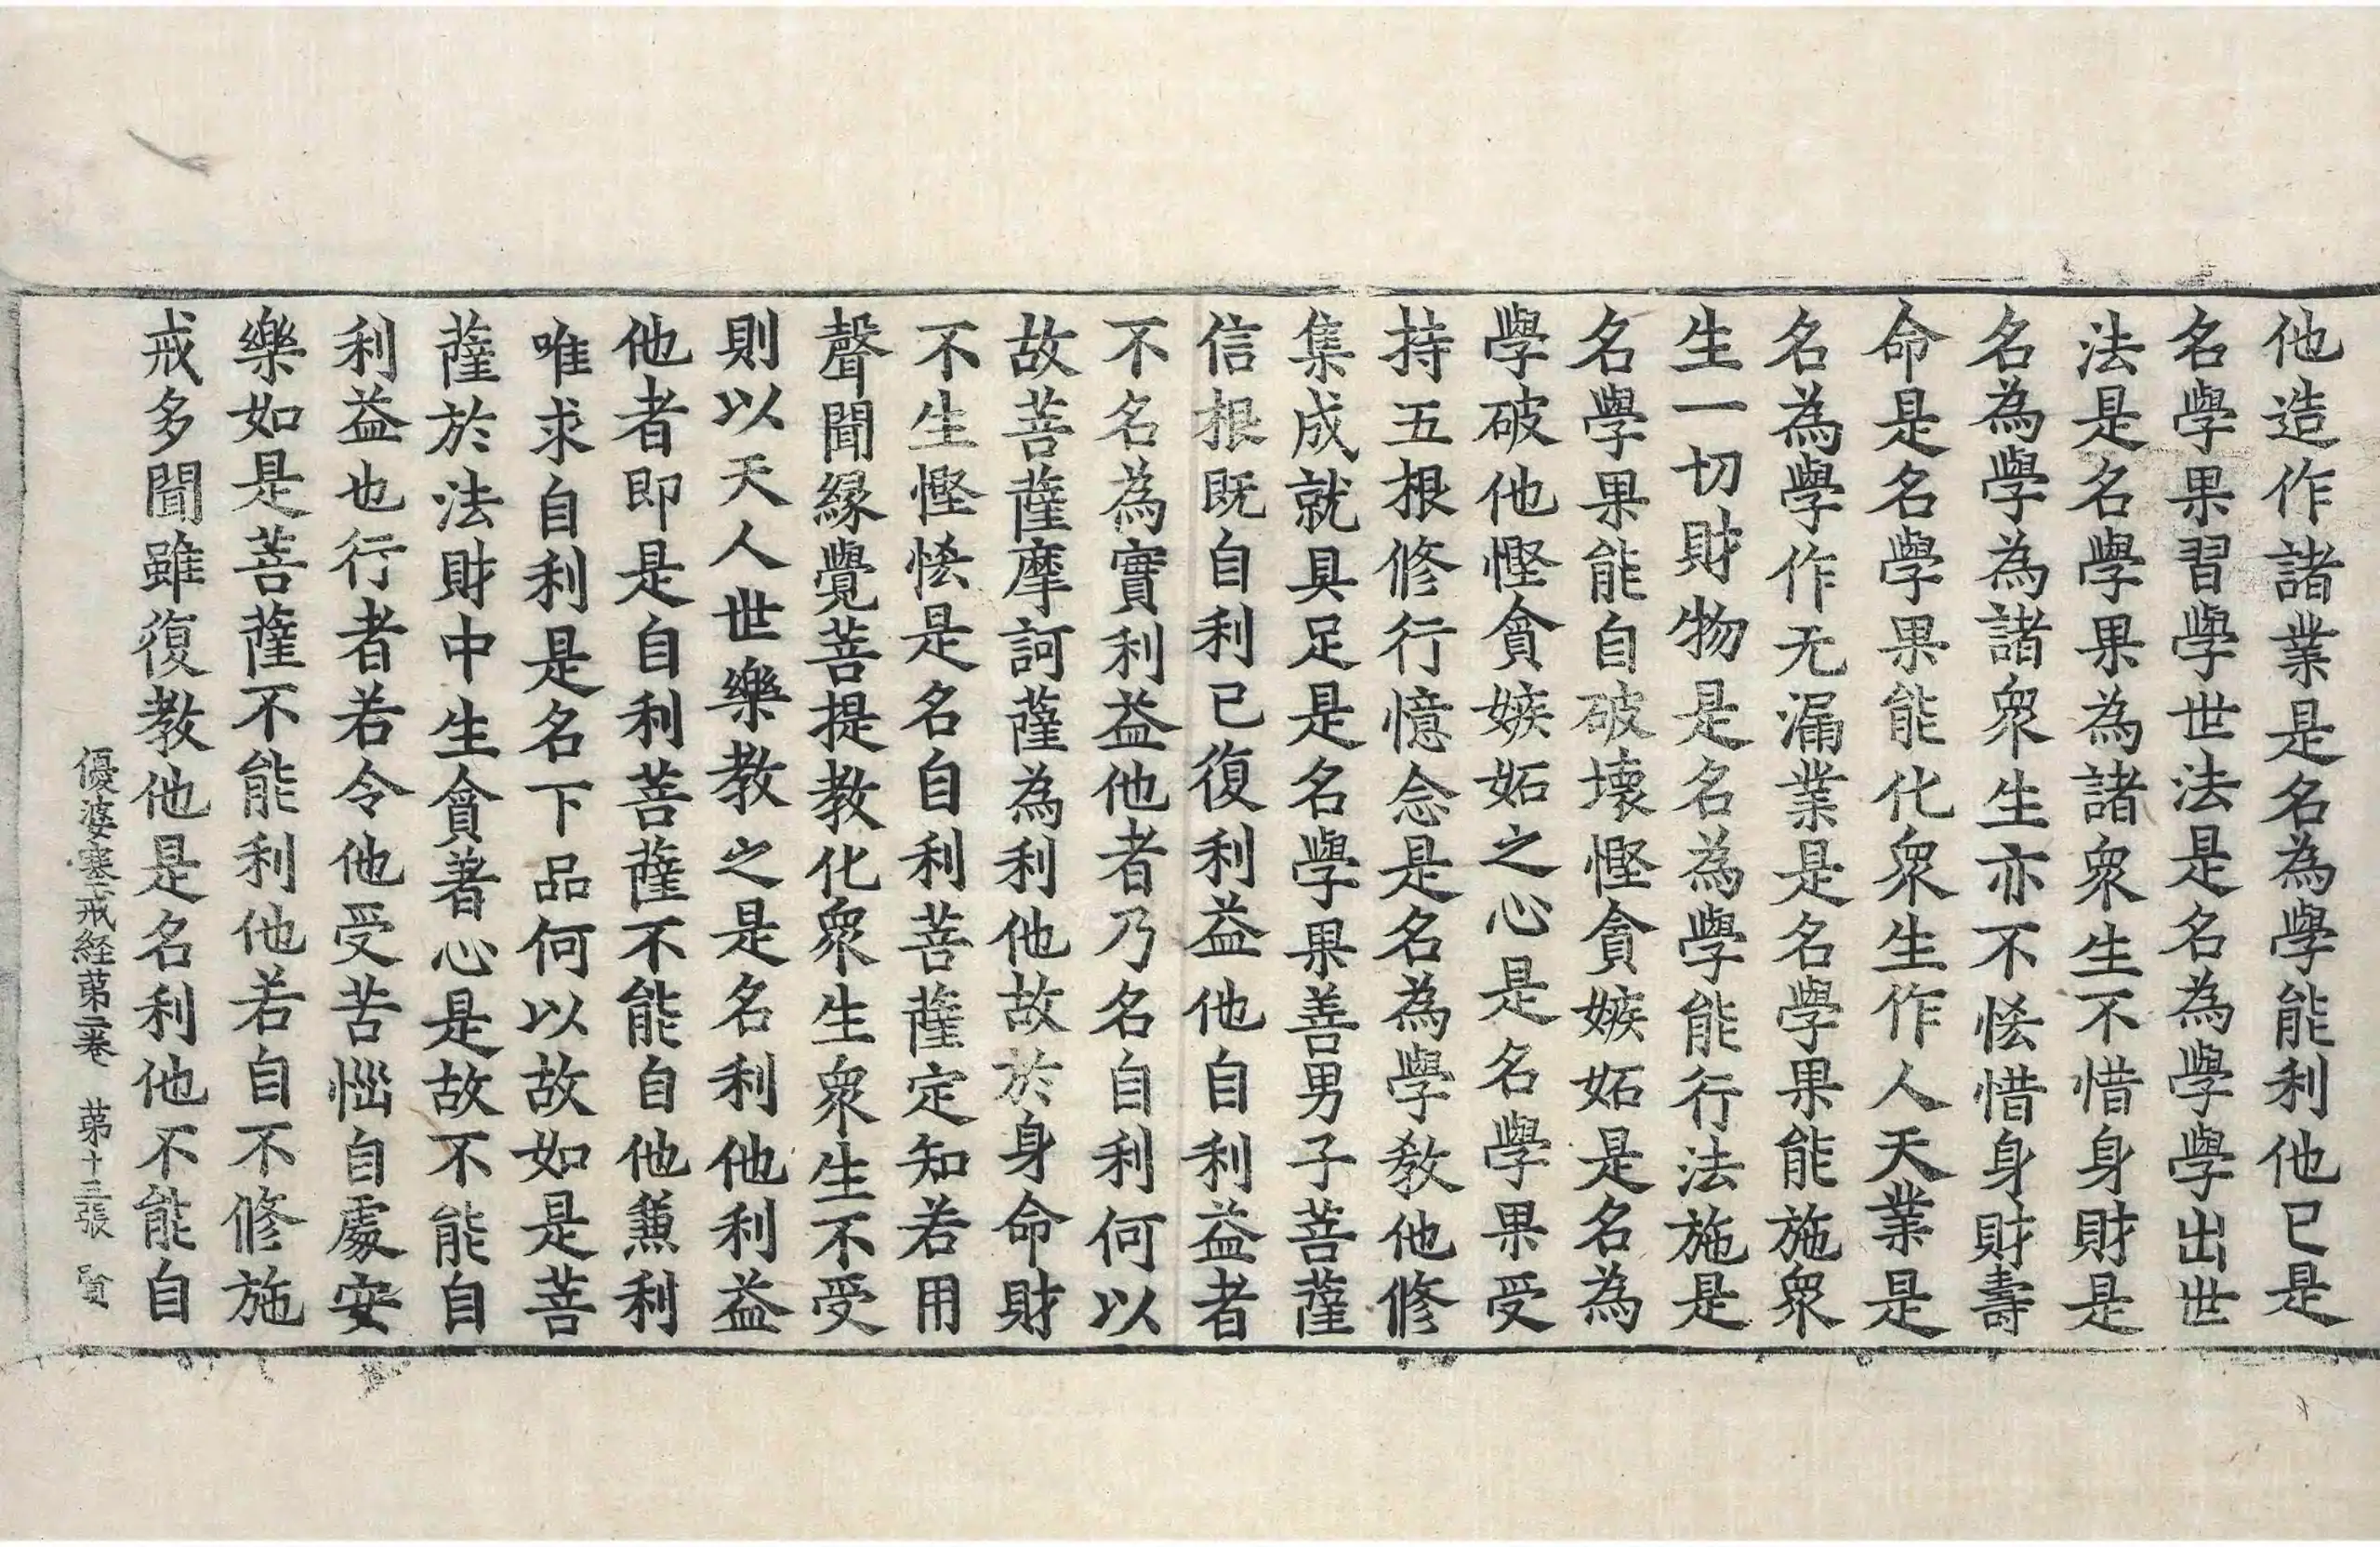 他造作諸業是名為學能利他已是
名學果習學世法是名為學學出世
法是名學果為諸衆生不惜身財是
名為學為諸衆生亦不悋惜身財壽
命是名學果能化衆生作人天業是
名為學作无漏業是名學果能施衆
生一切財物是名為學能行法施是
名學果能自破壞慳貪嫉妬是名為
學破他慳貪嫉妬之心是名學果受
持五根修行憶念是名為學教他修
集成就具足是名學果善男子菩薩
信根既自利已復利益他自利益者
不名為實利益他者乃名自利何以
故菩薩摩訶薩為利他故於身命財
不生慳悋是名自利菩薩定知若用
聲聞緣覺菩提教化衆生衆生不受
則以天人世樂教之是名利他利益
他者即是自利菩薩不能自他兼利
唯求自利是名下品何以故如是菩
薩於法財中生貪著心是故不能自
利益也行者若令他受苦惱自處安
樂如是菩薩不能利他若自不修施
戒多聞雖復教他是名利他不能自
優婆塞戒経苐二卷 苐十三張 賢